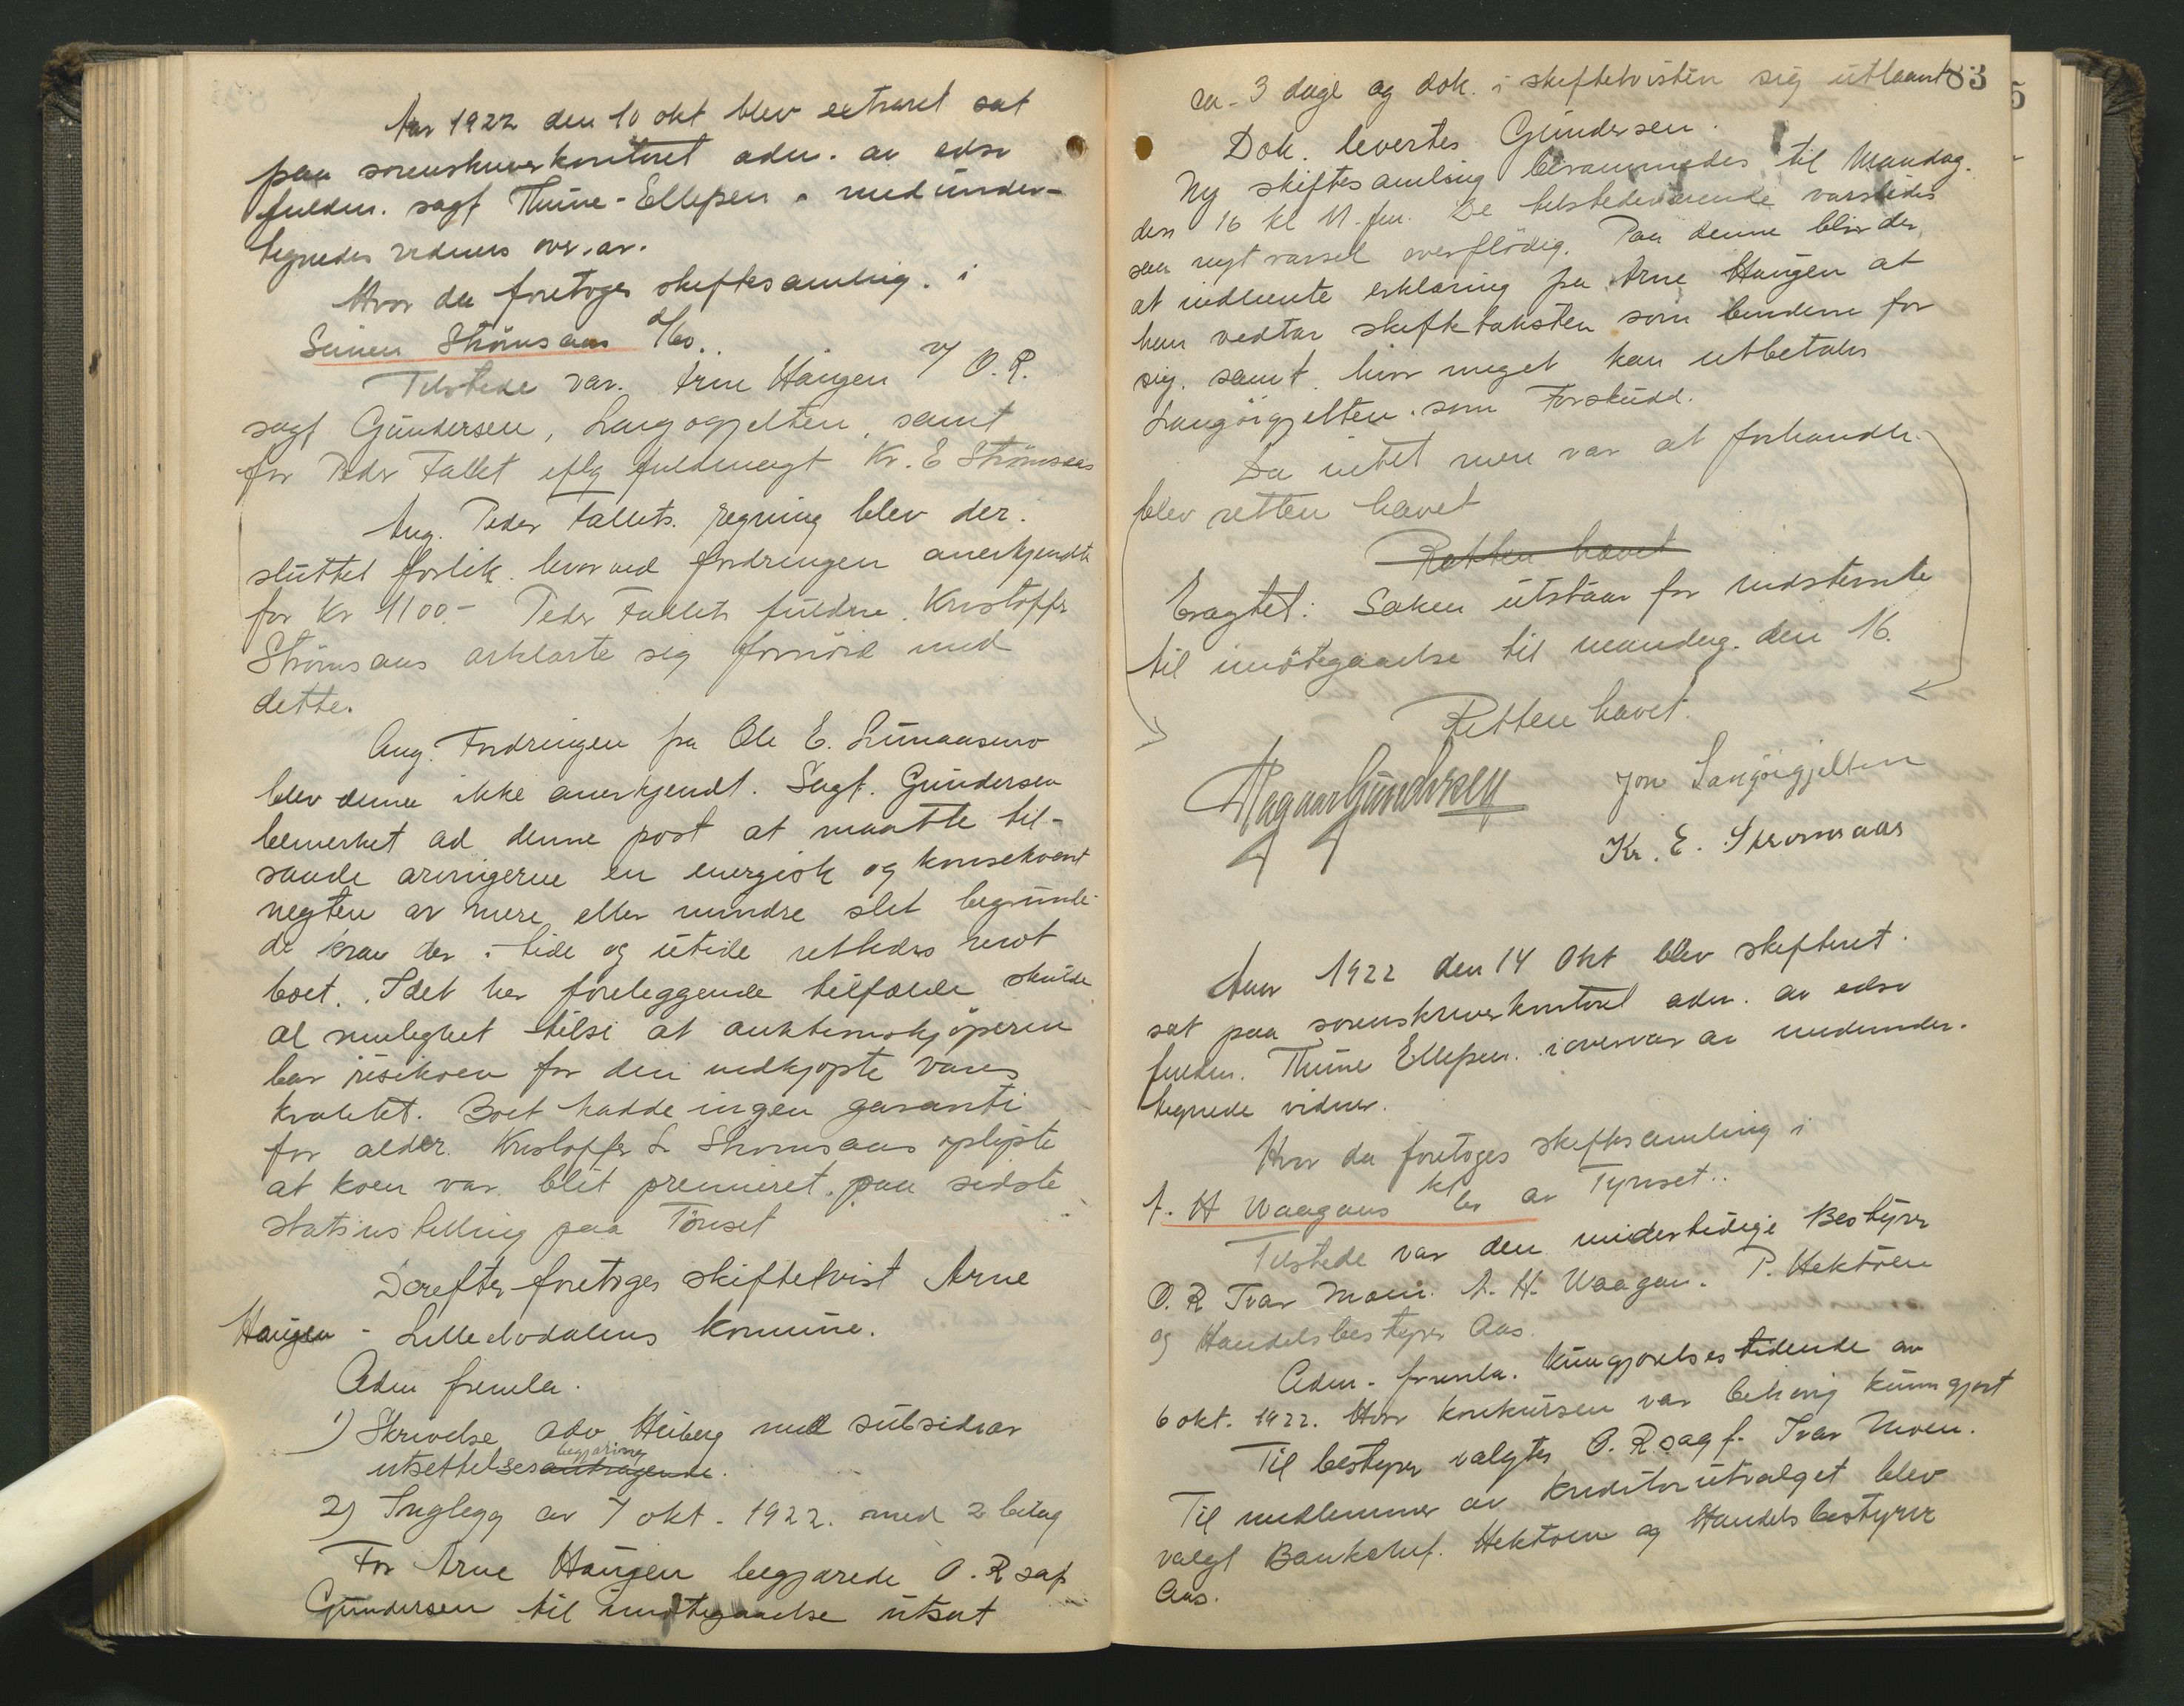 Aar 1922 den 10 okt blev extraret sat
paa sorenskriverkontoret adm. av edsv
fuldm. sagf Thune-Ellefsen . medunder-
tegnedes vidners overv.
Hvor da foretoges skiftesamling. i
Strømsaas d/bo.
Tilstede var. Arne Haugen v/ O. R.
sagf Gundersen, Langøigjelten, samt
for Peder Fallet iflg fuldmagt Kr. E Strömsaas
Ang. Peder Fallets. regning blev der.
sluttet forlik. hvorved fordringen anerkjendtes
for Kr 1100.- Peder Fallets fuldm. Kristoffer
Strömsaas erklærte sig fornöiet med
dette.
Ang. Fordringen fra Ole E.
blev denne ikke anerkjendt. Sagf. Gundersen
bemerket ad denne post at maatte til-
raade arvingerne en energisk og konsekvent
negten av mere eller mindre slet begrunde-
de krav der i tide og utide rettedes mot
boet. I det her foreliggende tilfælde skulde
al mulighet tilsi at auktionskjøperen
bar risikoen for den indkjøpte vares
kvalitet. Boet hadde ingen garanti
for alder. Kristoffer Strömsaas oplyste
at koen var blit premieret paa sidste
statsutstilling paa Tönset
Derefter foretoges skiftetvist Arne
Haugen - Lilleelvedalens kommune.
Adm fremla.
1) Skrivelse adv Heiberg med subsidiær
begjæring
utsettelsesandragende.
2) Indlegg av 7 okt. 1922. med 2 bilag
For Arne Haugen begjærede O. R sagf
Gundersen til imøtegaaelse utsat
83
5
ca. 3 dage og dok. i skiftetvisten sig utlaant
Dok. levertes Gundersen.
Ny skiftesamling berammedes til Mandag.
den 16 kl 11. fm. De tilstedeværende varsledes
saa nyt varsel overflödig. Paa denne blir der
at indhente erklæring fra Arne Haugen at
han vedtar skiftetaksten som bindene for
sig. samt. hvor meget kan utbetales
Langöigjelten. som Forskudd.
Da intet mere var at forhandle
blev retten hævet
Retten hævet
Eragtet: Saken utstaar for motstævnte
til imötegaaelse til mandag. den 16.
Retten hævet.
Ragnar Gundersen
Jon Langöigjelten
Kr. E. Stromsaas
Aar 1922 den 14 Okt blev skifteret.
sat paa sorenskriverkontoret adm. av edsv
fuldm. Thune Ellefsen. i overvær av medunder-
tegnede vidner.
Hvor da foretoges skiftesamling i
A. H Waagans kk bo av Tynset..
Tilstede var den midlertidige Bestyrer
O. R Ivar Moen. A. H. Waagan. P. Hektoen
og Handelsbestyrer Aas.
Adm. fremla. Kungjørelsestidende av
6 okt. 1922. Hvor konkursen var behørig kunngjort
Til bestyrer valgtes O. R.sagf. Ivar Moen.
Til medlemmer av kreditorutvalget blev
valgt Bankchef. Hektoen og Handelsbestyrer
Aas.